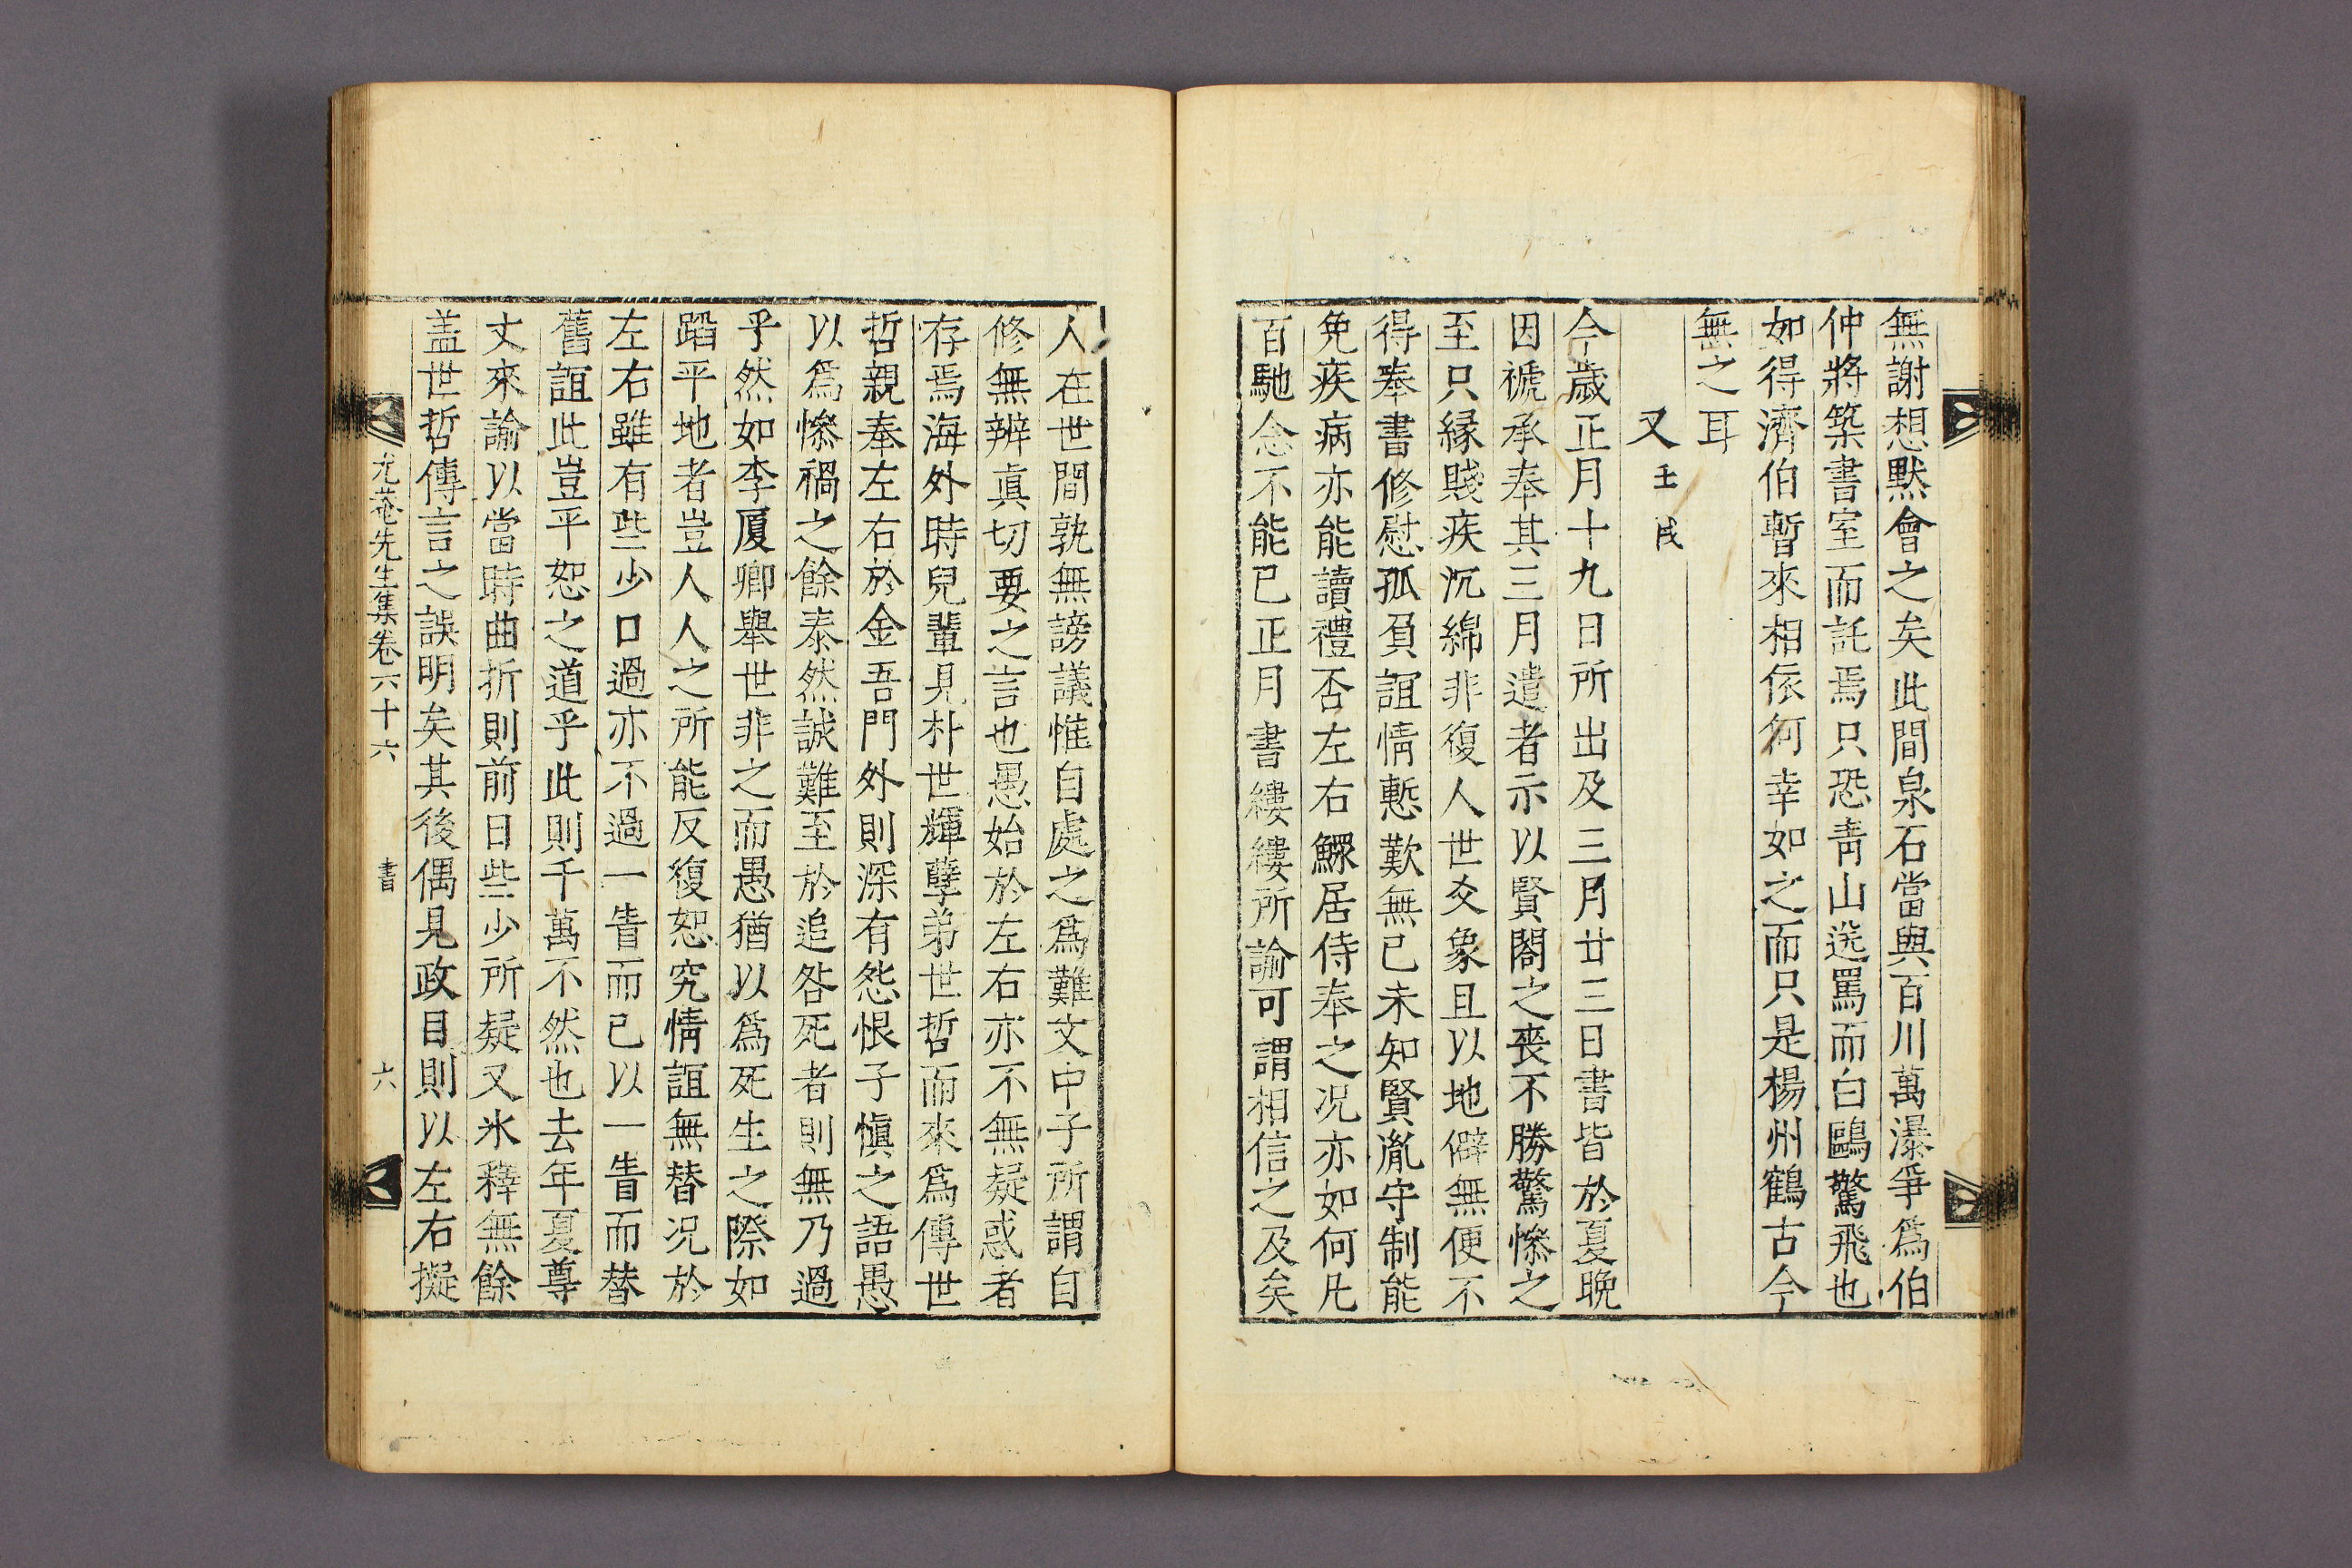 無謝想默會之矣此間泉石當與百川萬瀑爭爲伯
仲將築書室而託焉只恐靑山送罵而白鷗驚飛也
如得濟伯暫來相依何幸如之而只是楊州鶴古今
無之耳
又壬戌
今歲正月十九日所出及三月廿三日書皆於夏晩
因褫承奉其三月遣者示以賢閤之喪不勝驚慘之
至只緣賤疾沉綿非復人世爻象且以地僻無便不
得奉書修慰孤負誼情慙歎無已未知賢胤守制能
免疾病亦能讀禮否左右鰥居侍奉之况亦如何凡
百馳念不能已正月書縷縷所諭可謂相信之及矣
人在世間孰無謗議惟自處之爲難文中子所謂自
修無辨眞切要之言也愚始於左右亦不無疑惑者
存焉海外時兒輩見朴世輝孽弟世哲而來爲傳世
哲親奉左右於金吾門外則深有怨恨子愼之語愚
以爲慘禍之餘泰然誠難至於追咎死者則無乃過
乎然如李厦卿舉世非之而愚猶以爲死生之際如
蹈平地者豈人人之所能反復恕究情誼無替况於
左右雖有些少口過亦不過一眚而已以一眚而替
舊誼此豈平恕之道乎此則千萬不然也去年夏尊
丈來諭以當時曲折則前日些少所疑又氷釋無餘
盖世哲傳言之誤明矣其後偶見政目則以左右擬
尤菴先生集卷六十六 書 六